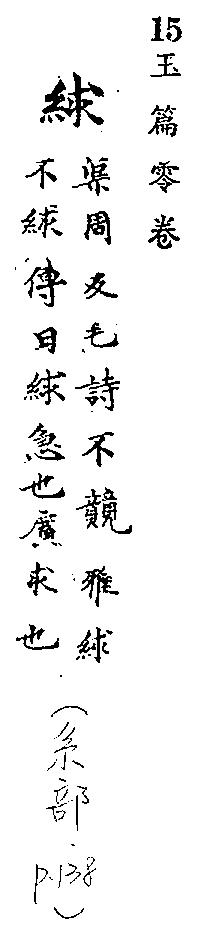 15 玉篇零卷
絿
渠周反毛詩不競
不絿傳曰絿急也廣
雅絿
求也
（糸部．p.138）